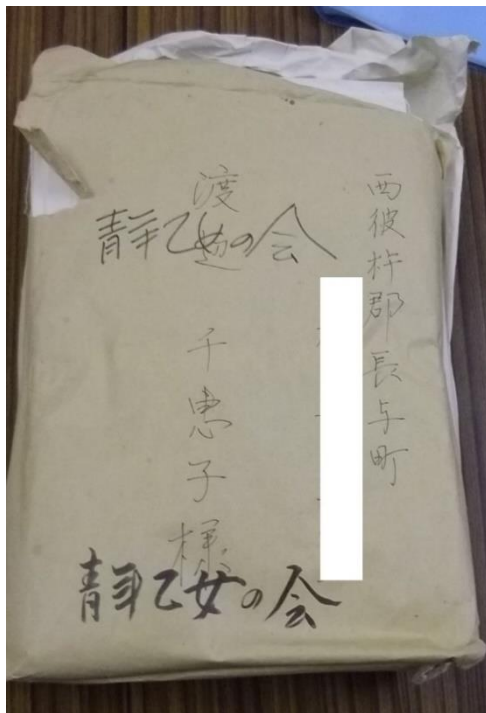 西彼杵郡長与町
渡辺
千恵子様
青年乙女の会
青年乙女の会